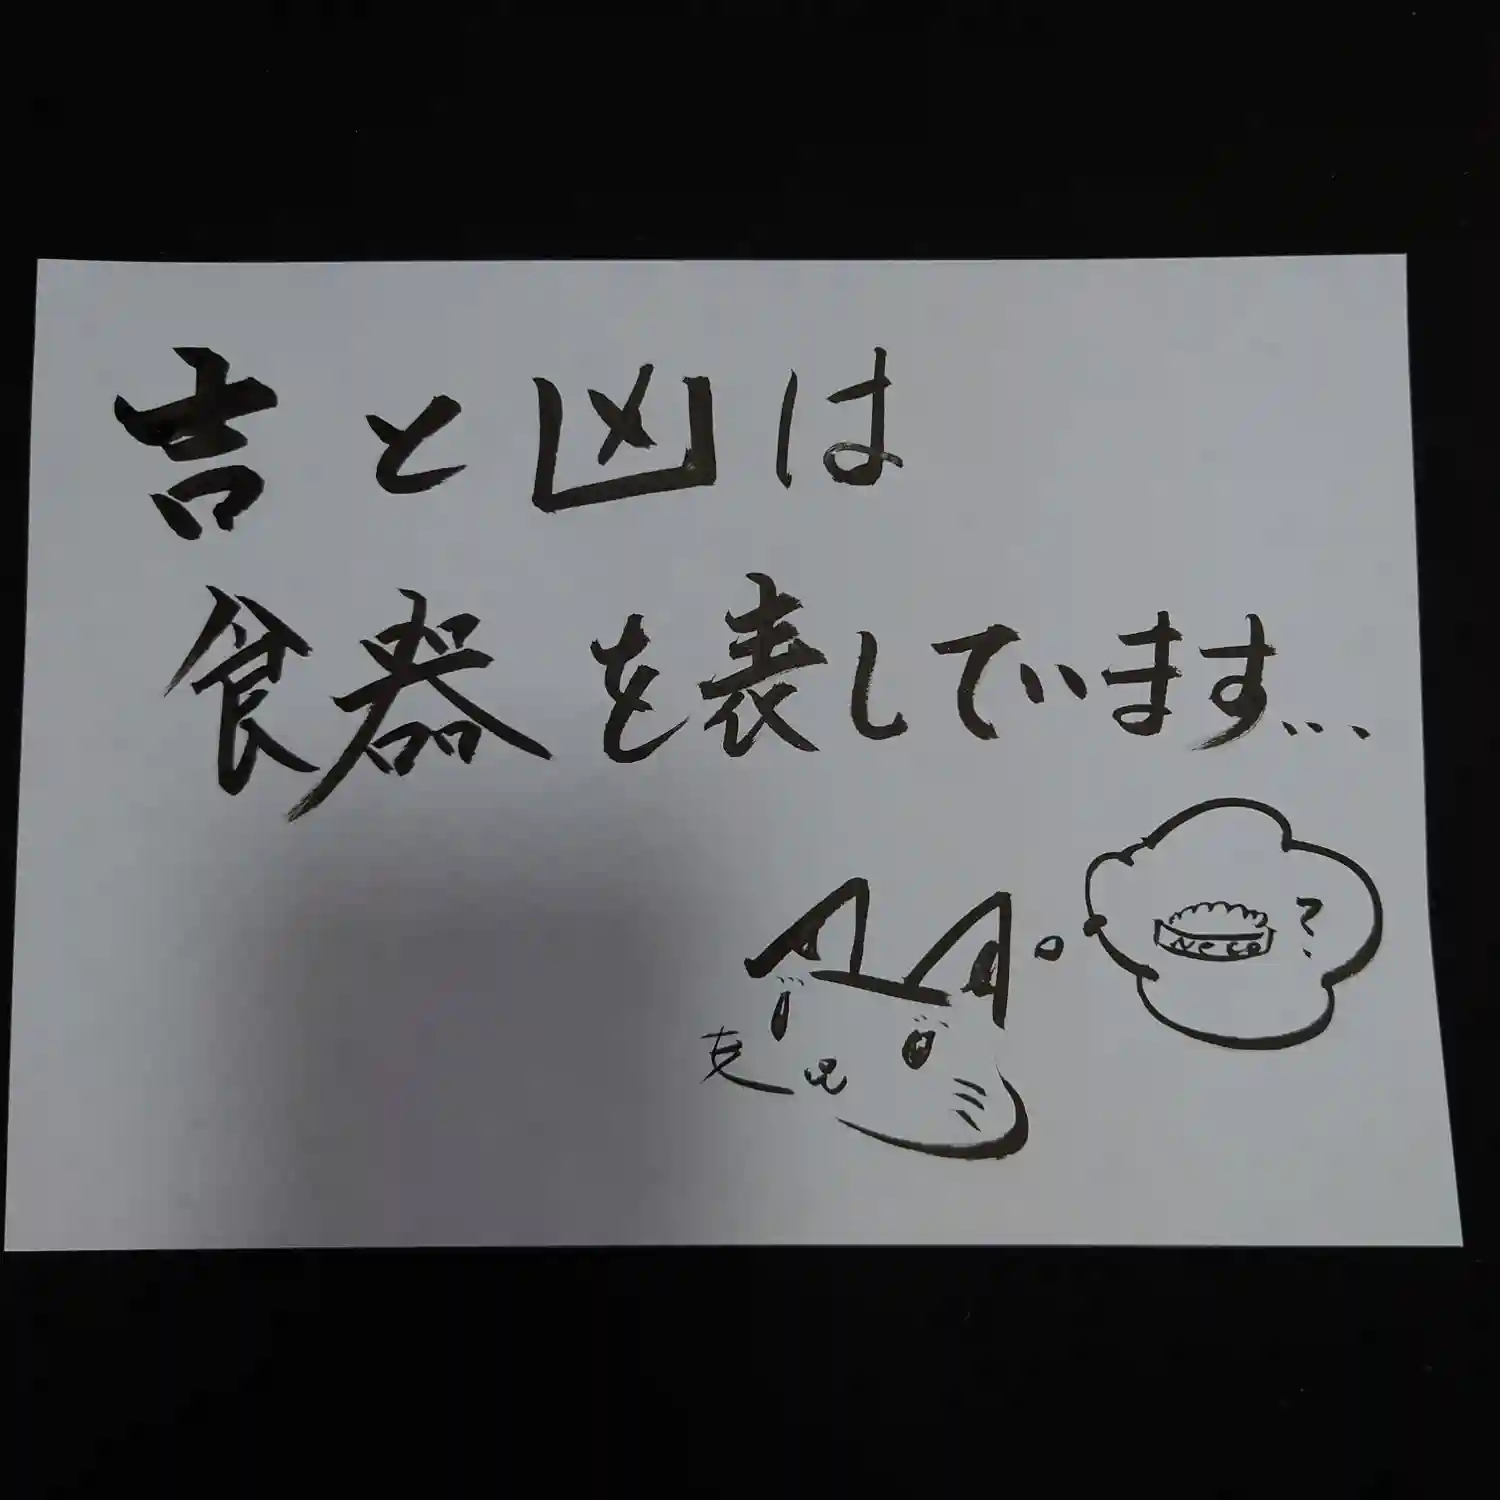 吉と凶は
食器を表しています...
neco ?